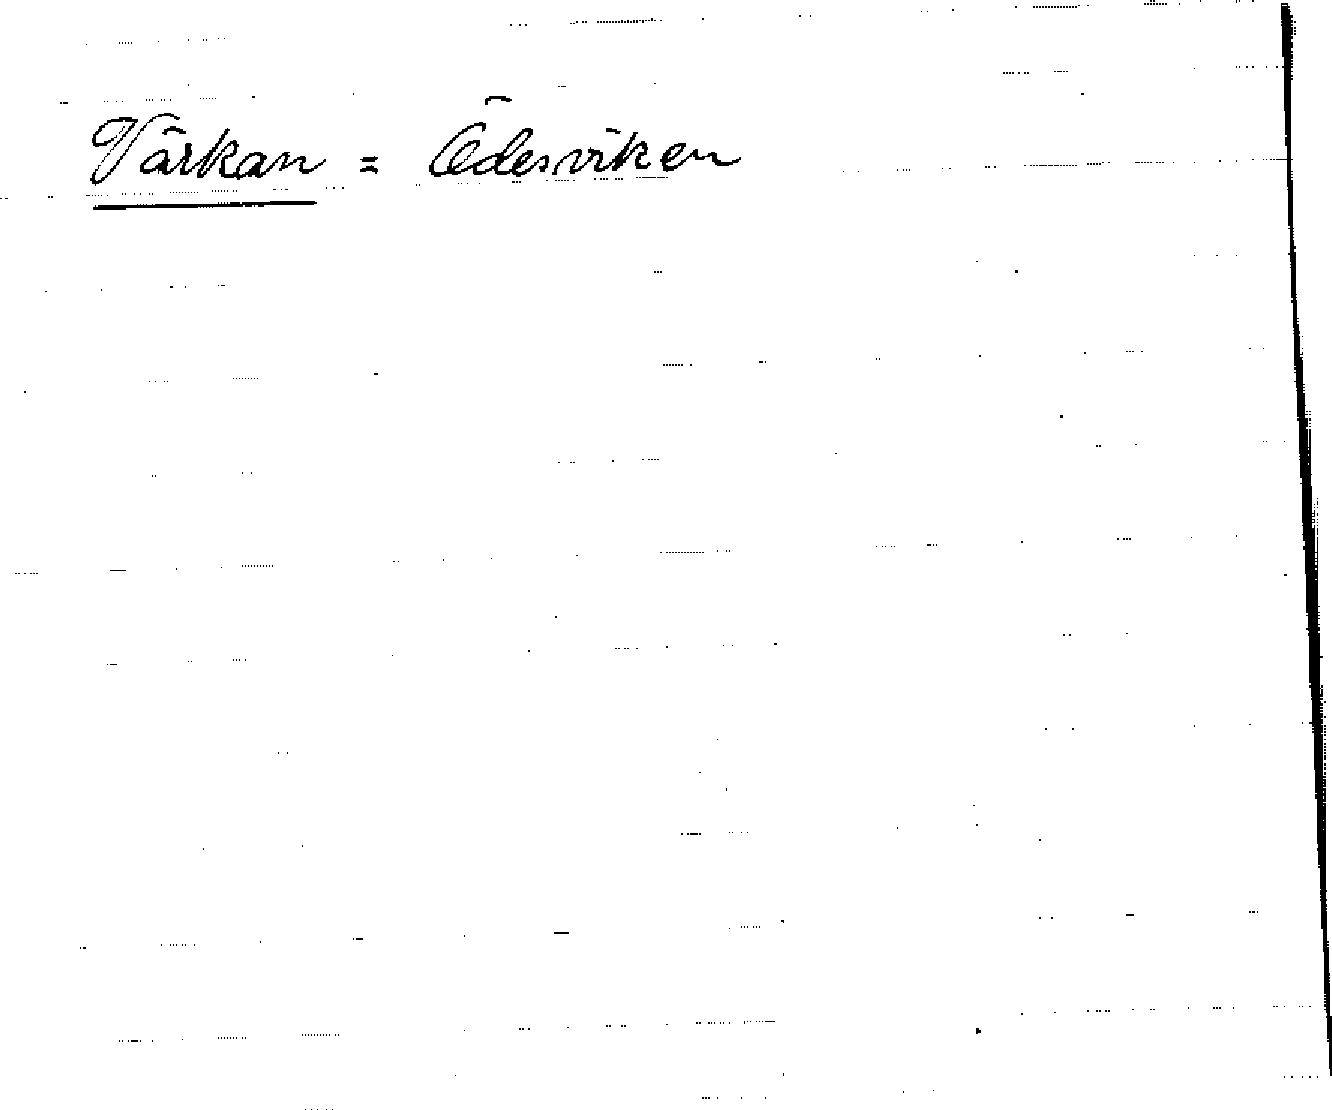 Värkan = Ödesviken